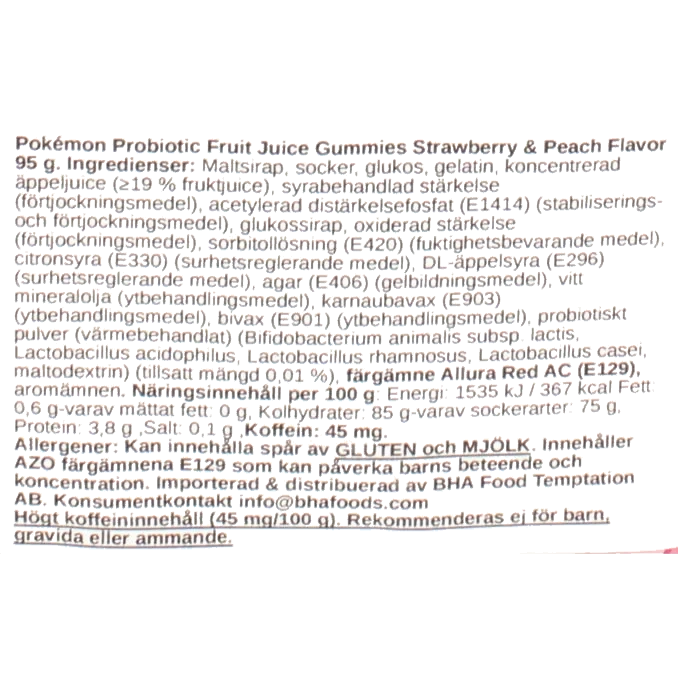 Pokémon Probiotic Fruit Juice Gummies Strawberry & Peach Flavor
95 g. Ingredienser: Maltsirap, socker, glukos, gelatin, koncentrerad
äppeljuice (≥19 % fruktjuice), syrabehandlad stärkelse
(förtjockningsmedel), acetylerad distärkelsefosfat (E1414) (stabiliserings-
och förtjockningsmedel), glukossirap, oxiderad stärkelse
(förtjockningsmedel), sorbitollösning (E420) (fuktighetsbevarande medel),
citronsyra (E330) (surhetsreglerande medel), DL-äppelsyra (E296)
(surhetsreglerande medel), agar (E406) (gelbildningsmedel), vitt
mineralolja (ytbehandlingsmedel), karnaubavax (E903)
(ytbehandlingsmedel), bivax (E901) (ytbehandlingsmedel), probiotiskt
pulver (värmebehandlat) (Bifidobacterium animalis subsp. lactis,
Lactobacillus acidophilus, Lactobacillus rhamnosus, Lactobacillus casei,
maltodextrin) (tillsatt mängd 0,01 %), färgämne Allura Red AC (E129),
aromämnen. Näringsinnehåll per 100 g: Energi: 1535 kJ / 367 kcal Fett:
0,6 g-varav mättat fett: 0 g, Kolhydrater: 85 g-varav sockerarter: 75 g,
Protein: 3,8 g ,Salt: 0,1 g ,Koffein: 45 mg.
Allergener: Kan innehålla spår av GLUTEN och MJÖLK. Innehåller
AZO färgämnena E129 som kan påverka barns beteende och
koncentration. Importerad & distribuerad av BHA Food Temptation
AB. Konsumentkontakt info@bhafoods.com
Högt koffeininnehåll (45 mg/100 g). Rekommenderas ej för barn,
gravida eller ammande.